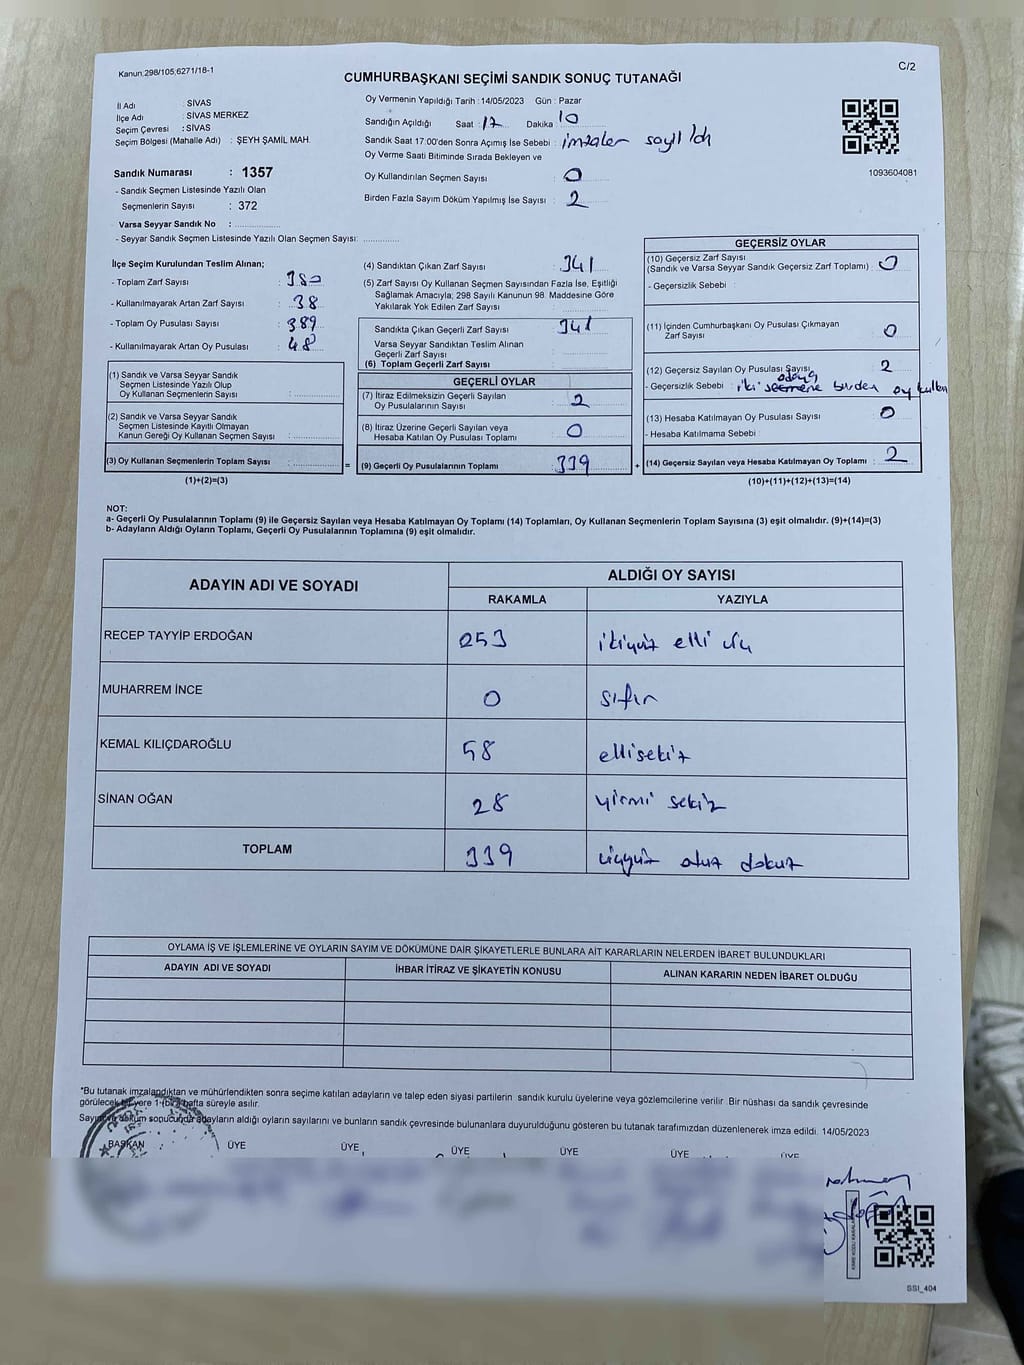 Kanun:298/105;6271/18-1
C/2
CUMHURBAŞKANI SEÇİMİ SANDIK SONUÇ TUTANAĞI
İl Adı : SİVAS
İlçe Adı : SİVAS MERKEZ
Seçim Çevresi : SİVAS
Seçim Bölgesi (Mahalle Adı) : ŞEYH ŞAMİL MAH.
Oy Vermenin Yapıldığı Tarih : 14/05/2023 Gün : Pazar
Sandığın Açıldığı Saat : 17 Dakika 10
Sandık Saat 17:00'den Sonra Açımış İse Sebebi : imzalar sayıldı
Oy Verme Saati Bitiminde Sırada Bekleyen ve
Oy Kullandırılan Seçmen Sayısı : 0
Birden Fazla Sayım Döküm Yapılmış İse Sayısı : 2
1093604081
Sandık Numarası : 1357
- Sandık Seçmen Listesinde Yazılı Olan
Seçmenlerin Sayısı : 372
Varsa Seyyar Sandık No :
- Seyyar Sandık Seçmen Listesinde Yazılı Olan Seçmen Sayısı:
İlçe Seçim Kurulundan Teslim Alınan;
- Toplam Zarf Sayısı : 380
- Kullanılmayarak Artan Zarf Sayısı : 38
- Toplam Oy Pusulası Sayısı : 389
- Kullanılmayarak Artan Oy Pusulası : 48
(1) Sandık ve Varsa Seyyar Sandık
Seçmen Listesinde Yazılı Olup
Oy Kullanan Seçmenlerin Sayısı :
(2) Sandık ve Varsa Seyyar Sandık
Seçmen Listesinde Kayıtlı Olmayan
Kanun Gereği Oy Kullanan Seçmen Sayısı :
(3) Oy Kullanan Seçmenlerin Toplam Sayısı :
(1)+(2)=(3)
(4) Sandıktan Çıkan Zarf Sayısı : 341
(5) Zarf Sayısı Oy Kullanan Seçmen Sayısından Fazla İse, Eşitliği
Sağlamak Amacıyla; 298 Sayılı Kanunun 98. Maddesine Göre
Yakılarak Yok Edilen Zarf Sayısı :
Sandıkta Çıkan Geçerli Zarf Sayısı : 341
Varsa Seyyar Sandıktan Teslim Alınan
Geçerli Zarf Sayısı :
(6) Toplam Geçerli Zarf Sayısı
GEÇERLİ OYLAR
(7) İtiraz Edilmeksizin Geçerli Sayılan
Oy Pusulalarının Sayısı : 2
(8) İtiraz Üzerine Geçerli Sayılan veya
Hesaba Katılan Oy Pusulası Toplamı : 0
= (9) Geçerli Oy Pusulalarının Toplamı : 339 +
GEÇERSİZ OYLAR
(10) Geçersiz Zarf Sayısı
(Sandık ve Varsa Seyyar Sandık Geçersiz Zarf Toplamı) : 0
- Geçersizlik Sebebi :
(11) İçinden Cumhurbaşkanı Oy Pusulası Çıkmayan
Zarf Sayısı : 0
(12) Geçersiz Sayılan Oy Pusulası Sayısı : 2
- Geçersizlik Sebebi : iki adaya birden oy kullan
(13) Hesaba Katılmayan Oy Pusulası Sayısı : 0
- Hesaba Katılmama Sebebi :
(14) Geçersiz Sayılan veya Hesaba Katılmayan Oy Toplamı : 2
(10)+(11)+(12)+(13)=(14)
NOT:
a- Geçerli Oy Pusulalarının Toplamı (9) ile Geçersiz Sayılan veya Hesaba Katılmayan Oy Toplamı (14) Toplamları, Oy Kullanan Seçmenlerin Toplam Sayısına (3) eşit olmalıdır. (9)+(14)=(3)
b- Adayların Aldığı Oyların Toplamı, Geçerli Oy Pusulalarının Toplamına (9) eşit olmalıdır.
ADAYIN ADI VE SOYADI
ALDIĞI OY SAYISI
RAKAMLA YAZIYLA
RECEP TAYYİP ERDOĞAN 253 ikiyüz elli üç
MUHARREM İNCE 0 sıfır
KEMAL KILIÇDAROĞLU 58 ellisekiz
SİNAN OĞAN 28 yirmi sekiz
TOPLAM 339 üçyüz otuz dokuz
OYLAMA İŞ VE İŞLEMLERİNE VE OYLARIN SAYIM VE DÖKÜMÜNE DAİR ŞİKAYETLERLE BUNLARA AİT KARARLARIN NELERDEN İBARET BULUNDUKLARI
ADAYIN ADI VE SOYADI İHBAR İTİRAZ VE ŞİKAYETİN KONUSU ALINAN KARARIN NEDEN İBARET OLDUĞU
*Bu tutanak imzalandıktan ve mühürlendikten sonra seçime katılan adayların ve talep eden siyasi partilerin sandık kurulu üyelerine veya gözlemcilerine verilir. Bir nüshası da sandık çevresinde
görülecek bir yere 1 (bir) hafta süreyle asılır.
Sayım ve döküm sonucunda adayların aldığı oyların sayılarını ve bunların sandık çevresinde bulunanlara duyurulduğunu gösteren bu tutanak tarafımızdan düzenlenerek imza edildi. 14/05/2023
BAŞKAN ÜYE ÜYE ÜYE ÜYE ÜYE ÜYE
SSI_404